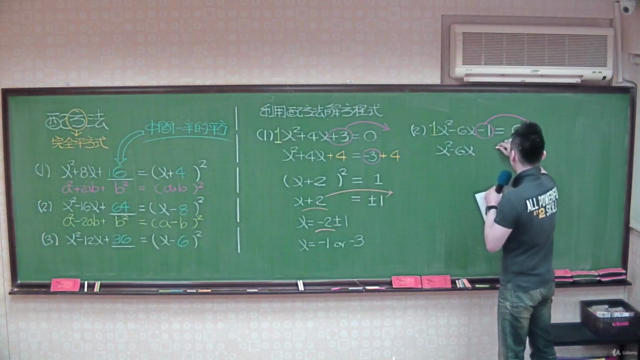 配方法
完全平方式
中間一半的平方
(1) x²+8x+16=(x+4)²
a²+2ab+b²=(a+b)²
(2) x²-16x+64=(x-8)²
a²-2ab+b²=(a-b)²
(3) x²-12x+36=(x-6)²
利用配方法解方程式
(1) 1x²+4x+3=0
x²+4x+4=-3+4
(x+2)²=1
x+2=±1
x=-2±1
x=-1 or -3
(2) 1x²-6x-1=
x²-6x
ALL POWERFUL